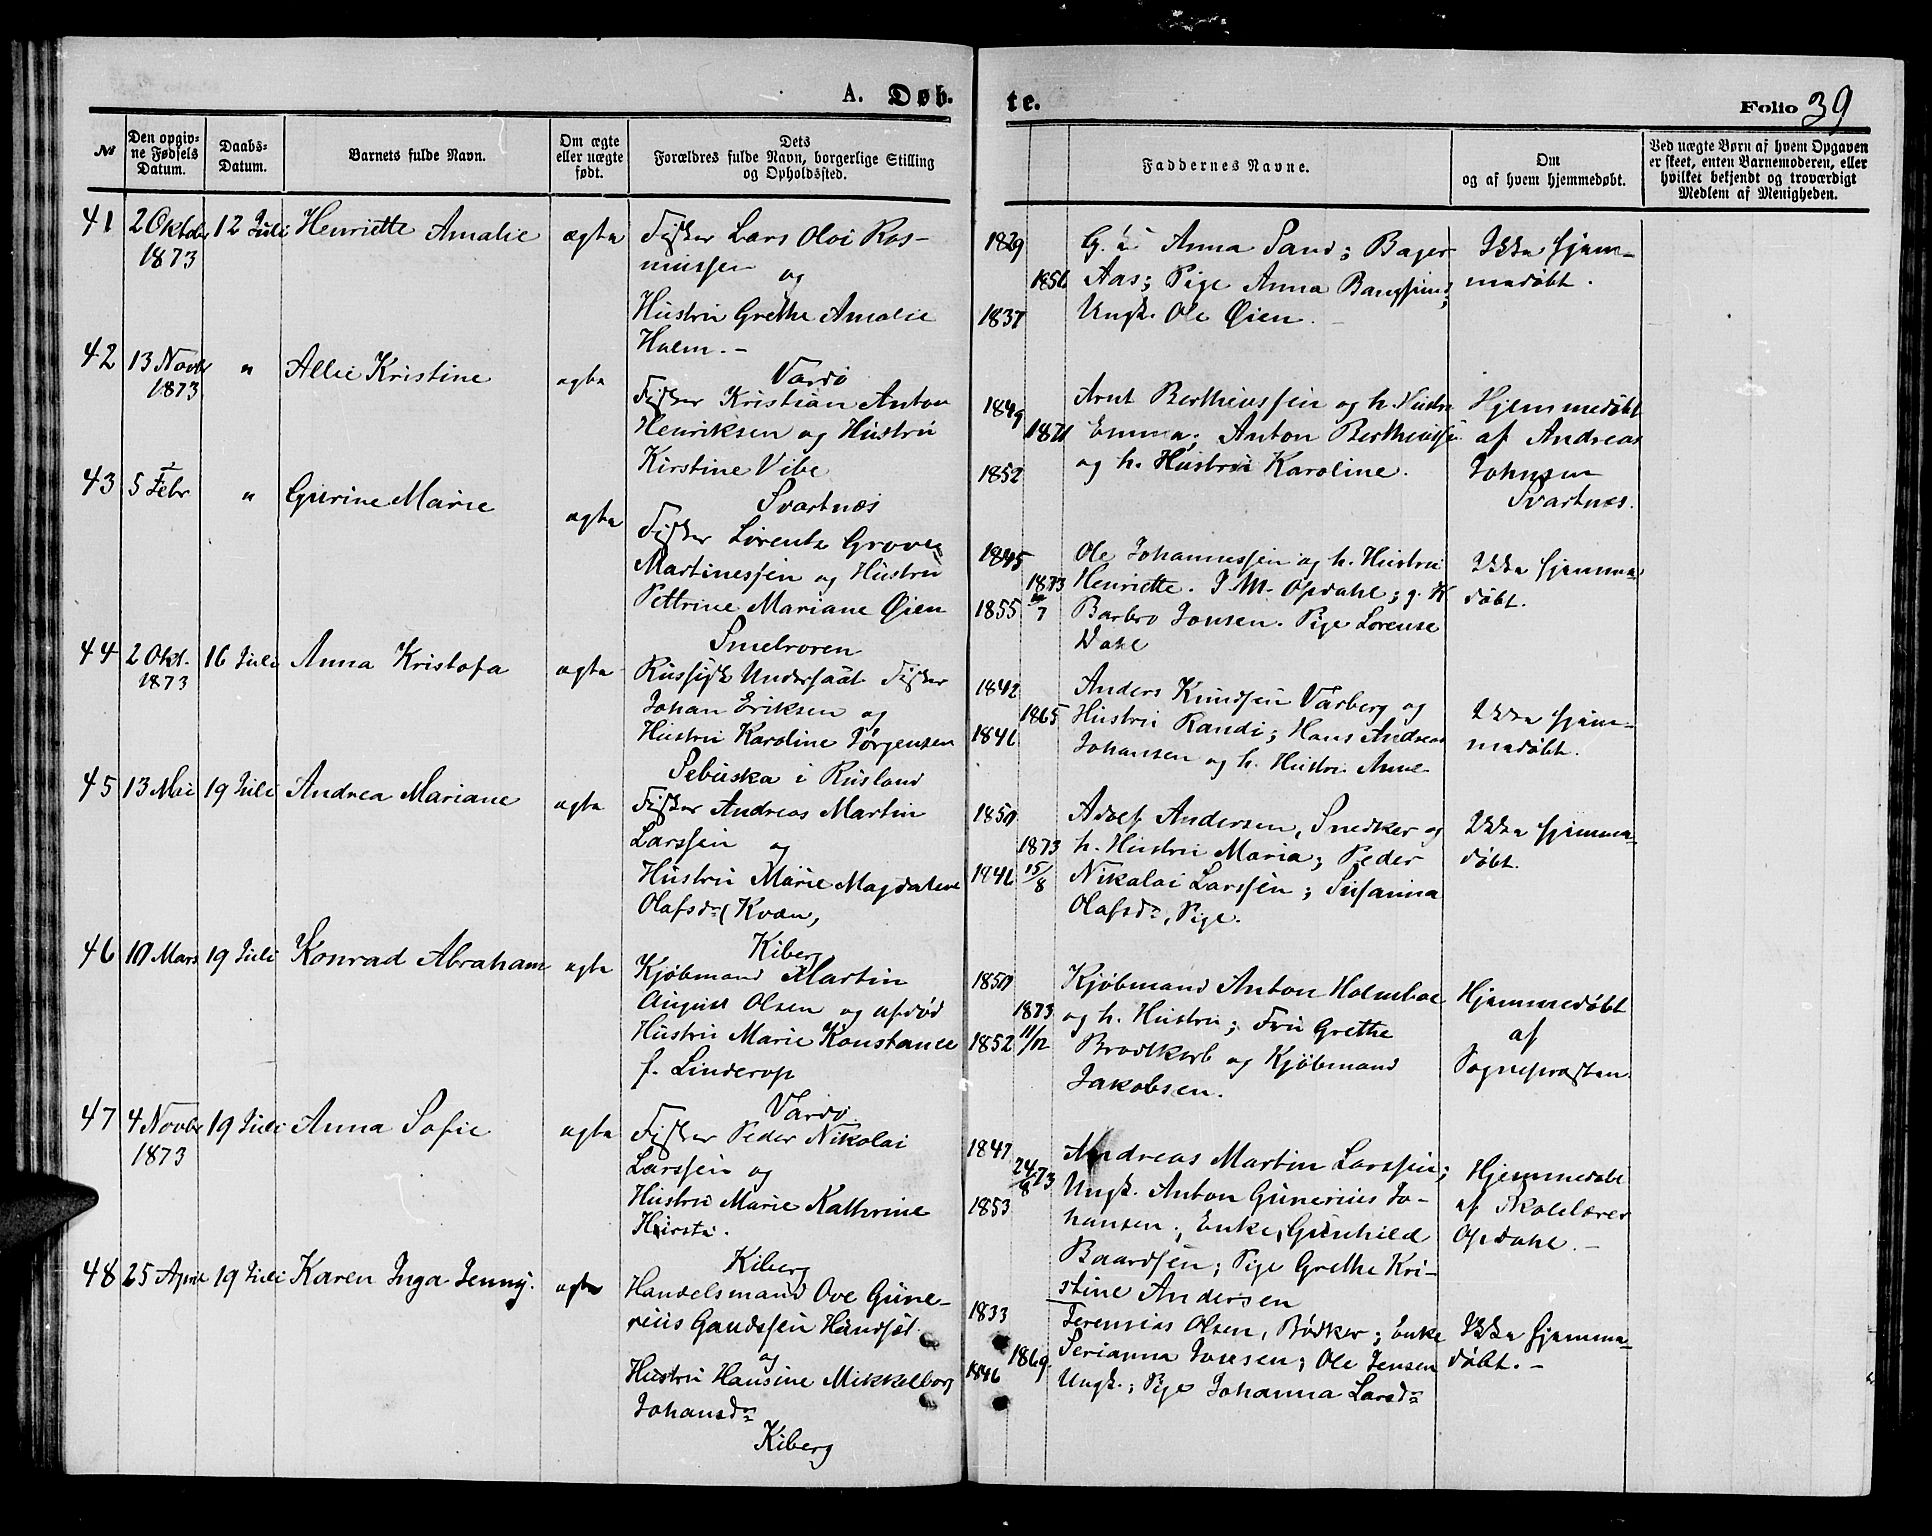 A. Døb-
te.
Folio 39
№
Den opgiv-
ne Fødsels
Datum.
Daabs-
Datum.
Barnets fulde Navn.
Om ægte
eller uægte
født.
Dets
Forældres fulde Navn, borgerlige Stilling
og Opholdssted.
Faddernes Navne.
Om
og af hvem hjemmedøbt.
Ved uægte Børn af hvem Opgaven
er skeet, enten Barnemoderen, eller
hvilket bekjendt og troværdigt
Medlem af Menigheden.
41
2 Oktober
1873
12 Juli
Henriette Amalie
ægte
Fisker Lars Olai Ras-
mussen og
Hustru Grethe Amalie
Holm. -
Vardö
1829
1856
1837
G. Anna Sand; Bager
Aas; Pige Anna Bangsund;
Ungk. Ole Øien.
Ikke hjem-
medøbt.
42
13 Novbr
1873
"
Allie Kristine
ægte
Fisker Kristian Anton
Henriksen og Hustru
Kirstine Vibe
Svartnæs
1849
1871
1852
Arnt Bertheussen og h. Hustru
Emma; Anton Bertheussen
og h. Hustru Karoline.
Hjemmedøbt
af Andreas
Johnsen
Svartnæs.
43
5 Febr
"
Gurine Marie
ægte
Fisker Lorentz Grove
Martinessen og Hustru
Pettrine Mariane Øien
Smelroren
1845
1873
1855
7
Ole Johannessen og h. Hustru
Henriette. J. M. Opdahl; g. K
Barbro Jonsen. Pige Lorense
Dahl
Ikke hjemme-
døbt.
44
2 Okt.
1873
16 Juli
Anna Kristofa
ægte
Russisk Undersaat Fisker
Johan Eriksen og
Hustru Karoline Jørgensen
Sebuska i Rusland
1842
1865
1841
Anders Knudsen Varberg og
Hustru Randi; Hans Andreas
Johansen og h. Hustru Anne
Ikke hjem-
medøbt.
45
13 Mai
19 Juli
Andrea Mariane
ægte
Fisker Andreas Martin
Larssen og
Hustru Marie Magdalene
Olafsdr (Kvæn,
Kiberg
1850
1873
1846
15/8
Adolf Andersen, Snedker og
h. Hustru Maria; Peder
Nikolai Larssen; Susanna
Olafsdr, Pige.
Ikke hjemme-
døbt.
46
10 Mars
19 Juli
Konrad Abraham
ægte
Kjøbmand Martin
August Olsen og afdød
Hustru Marie Konstance
f. Linderup
Vardö
1850
1873
1852
11/12
Kjøbmand Anton Holmboe
og h. Hustru; Fru Grethe
Brodtkorb og Kjøbmand
Jakobsen.
Hjemmedøbt
af
Sognepræsten.
47
4 Novbr
1873
19 Juli
Anna Sofie
ægte
Fisker Peder Nikolai
Larssen og
Hustru Marie Kathrine
Hirsti.
Kiberg
1847
24/8 73
1853
Andreas Martin Larssen;
Ungk. Anton Gunerius Jo-
hansen; Enke Gunhild
Baardsen; Pige Grethe Kri-
stine Andersen
Hjemmedøbt
af Skolelærer
Opdahl. -
48
25 April
19 Juli
Karen Inga Jenny.
ægte
Handelsmand Ove Gune-
rius Gaudssen
og
Hustru Hansine Mikkelborg
Johansdr
Kiberg
1833
1869
1846
Jeremias Olsen, Bødker; Enke
Serianna Jonsen; Ole Jensen
Ungk.; Pige Johanna Larsdr
Ikke hjemme-
døbt. -